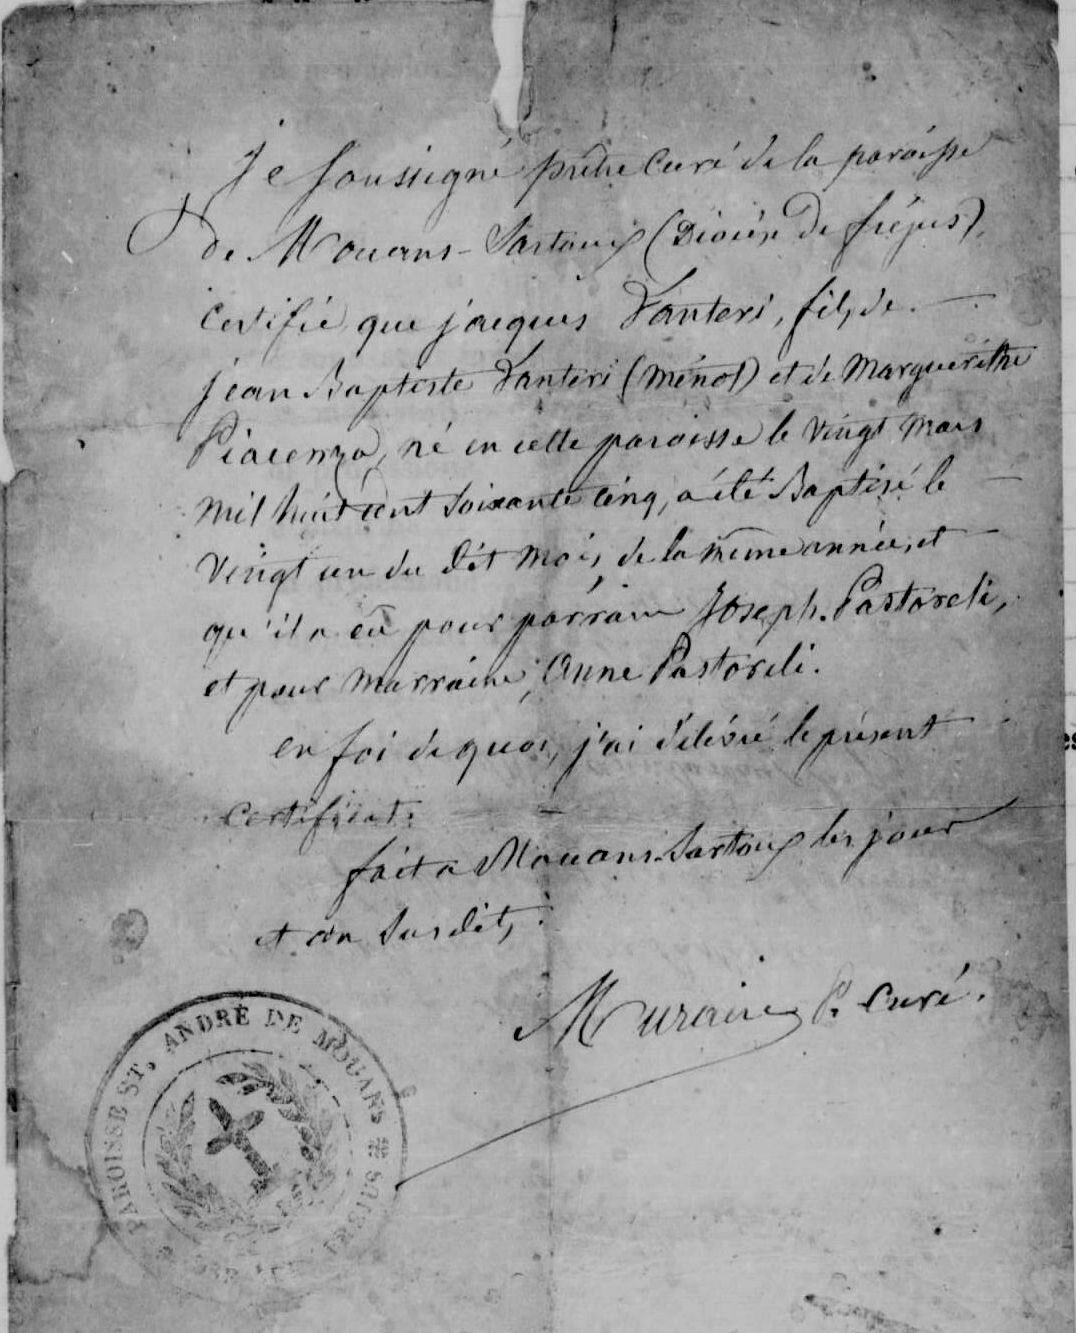 Je soussigné prêtre curé de la paroisse
de Mouans-Sartoux (Diocèse de fréjus),
certifie que jacques Lanteri, fils de
jean Baptiste Lanteri (Ménot) et de Marguerithe
Piacenza, né en cette paroisse le vingt mars
mil huit cent soixante cinq, a été Baptisé le
vingt un du dit mois, de la même année, et
qu'il a eû pour parrain Joseph Pastoreli,
et pour marraine, Anne Pastoreli.
en foi de quoi, j'ai délivré le présent
certificat.
fait à Mouans Sartoux les jour
et an susdit,
Muraire P. Curé.
PAROISSE ST. ANDRÉ DE MOUANS